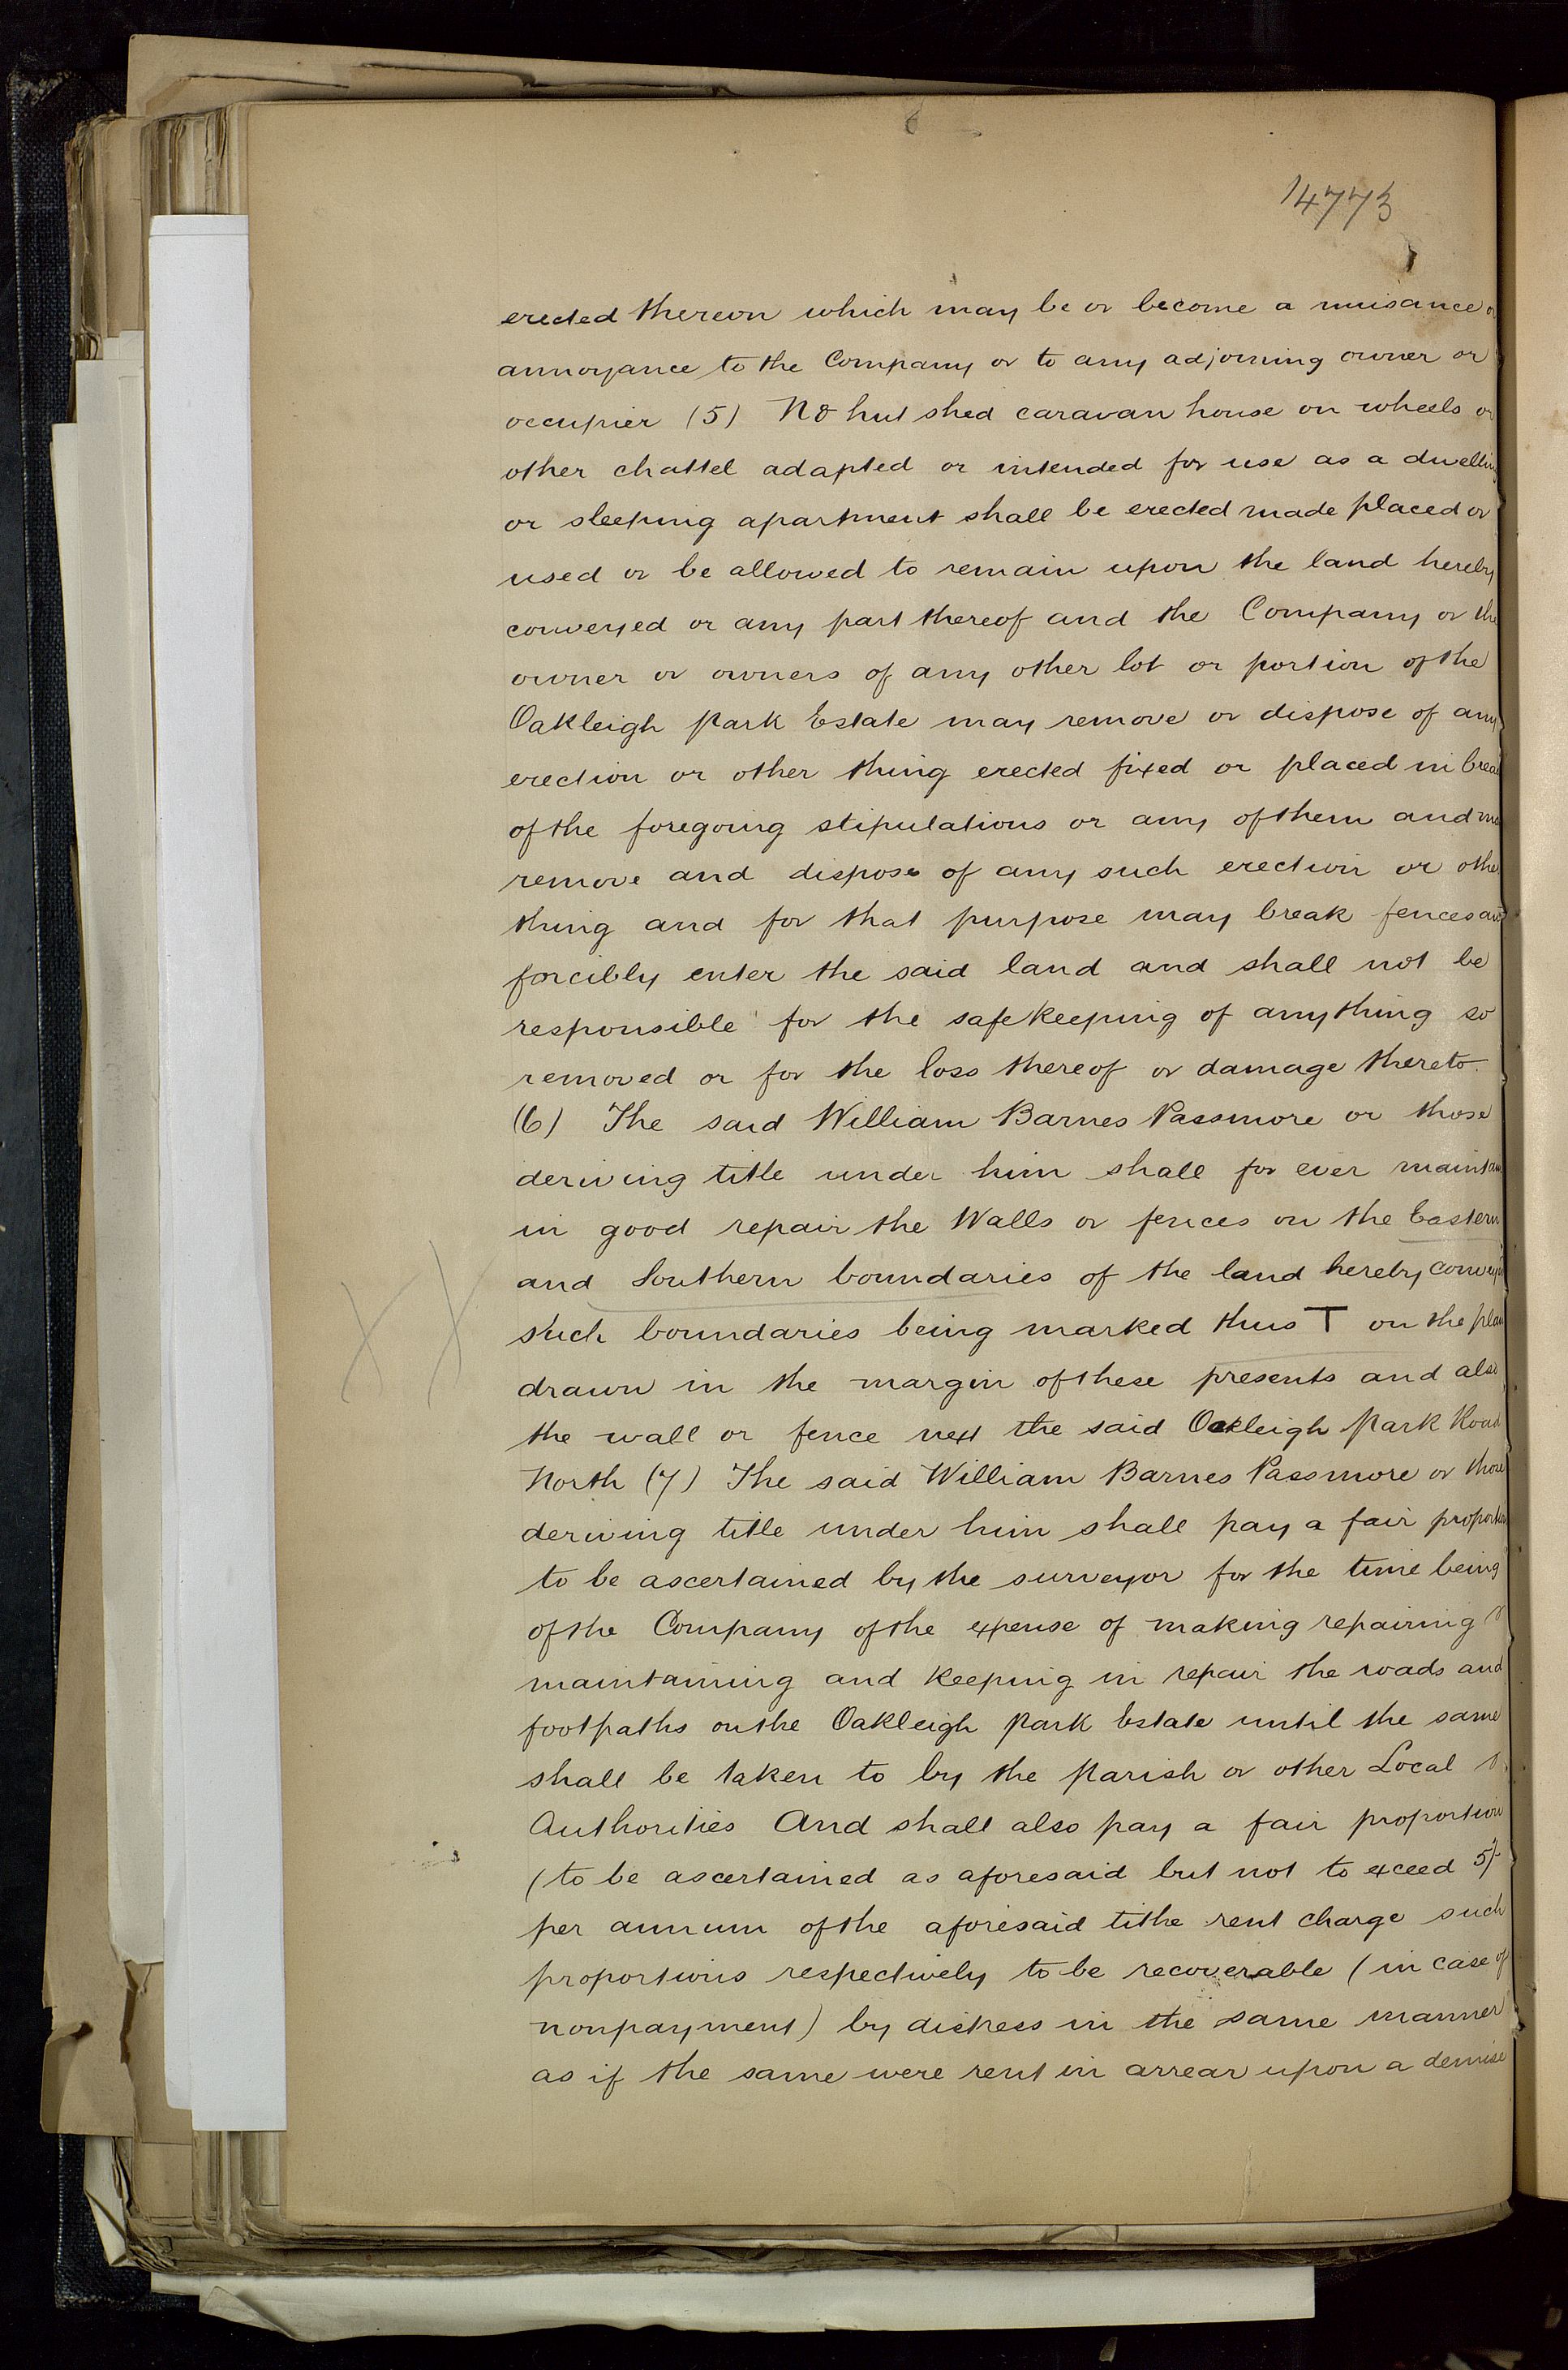 14773
erected thereon which may be or become a nuisance or
annoyance to the Company or to any adjoining owner or
occupier (5) No hut shed caravan house on wheels or
other chattel adapted or intended for use as a dwelling
or sleeping apartment shall be erected made placed or
used or be allowed to remain upon the land hereby
conveyed or any part thereof and the Company or the
owner or owners of any other lot or portion of the
Oakleigh Park Estate may remove or dispose of any
erection or other thing erected fixed or placed in breac
of the foregoing stipulations or any of them and ma
remove and dispose of any such erection or othe
thing and for that purpose may break fences and
forcibly enter the said land and shall not be
responsible for the safe keeping of anything so
removed or for the loss thereof or damage thereto.
(6) The said William Barnes Passmore or those
deriving title under him shall for ever maintain
in good repair the Walls or fences on the Eastern
and Southern boundaries of the land hereby conveyed
such boundaries being marked thus T on the plan
drawn in the margin of these presents and also
the wall or fence next the said Oakleigh Park Road
North (7) The said William Barnes Passmore or those
deriving title under him shall pay a fair proportion
to be ascertained by the surveyor for the time being
of the Company of the expense of making repairing
maintaining and keeping in repair the roads and
footpaths on the Oakleigh Park Estate until the same
shall be taken to by the Parish or other Local
Authorities And shall also pay a fair proportion
(to be ascertained as aforesaid but not to exceed 5/-
per annum of the aforesaid tithe rent charge such
proportions respectively to be recoverable (in case of
nonpayment) by distress in the same manner
as if the same were rent in arrear upon a demise